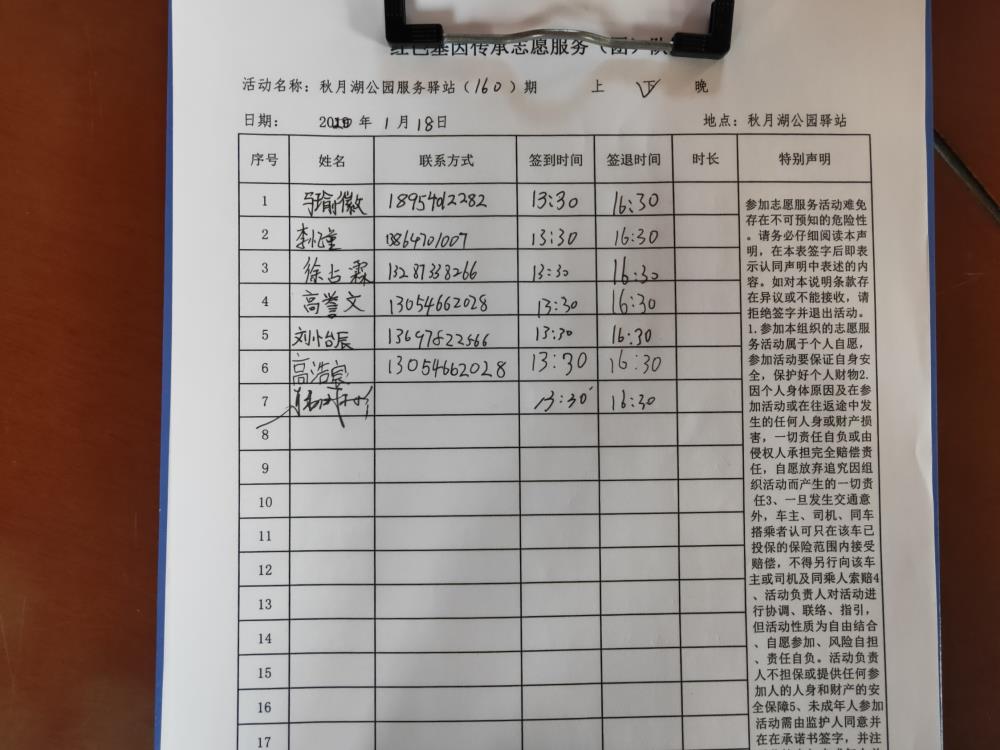 红色基因传承志愿服务（团）队
活动名称：秋月湖公园服务驿站（160）期 上 下 晚
日期： 年 1 月 18 日 地点：秋月湖公园驿站
序号 姓名 联系方式 签到时间 签退时间 时长 特别声明
1 马瑜徽 18954012282 13:30 16:30
2 13:30 16:30
3 徐占霖 13287338266 13:30 16:30
4 高誉文 13054662028 13:30 16:30
5 刘怡辰 13:30 16:30
6 高浩宸 13054662028 13:30 16:30
7 13:30 16:30
8
9
10
11
12
13
14
15
16
17
参加志愿服务活动难免
存在不可预知的危险性
。请务必仔细阅读本声
明，在本表签字后即表
示认同声明中表述的内
容。如对本说明条款存
在异议或不能接收，请
拒绝签字并退出活动。
1.参加本组织的志愿服
务活动属于个人自愿，
参加活动要保证自身安
全，保护好个人财物2.
因个人身体原因及在参
加活动或在往返途中发
生的任何人身或财产损
害，一切责任自负或由
侵权人承担完全赔偿责
任，自愿放弃追究因组
织活动而产生的一切责
任3、一旦发生交通意
外，车主、司机、同车
搭乘者认可只在该车已
投保的保险范围内接受
赔偿，不得另行向该车
主或司机及同乘人索赔4
、活动负责人对活动进
行协调、联络、指引，
但活动性质为自由结合
、自愿参加、风险自担
、责任自负。活动负责
人不担保或提供任何参
加人的人身和财产的安
全保障5、未成年人参加
活动需由监护人同意并
在在承诺书签字，并注